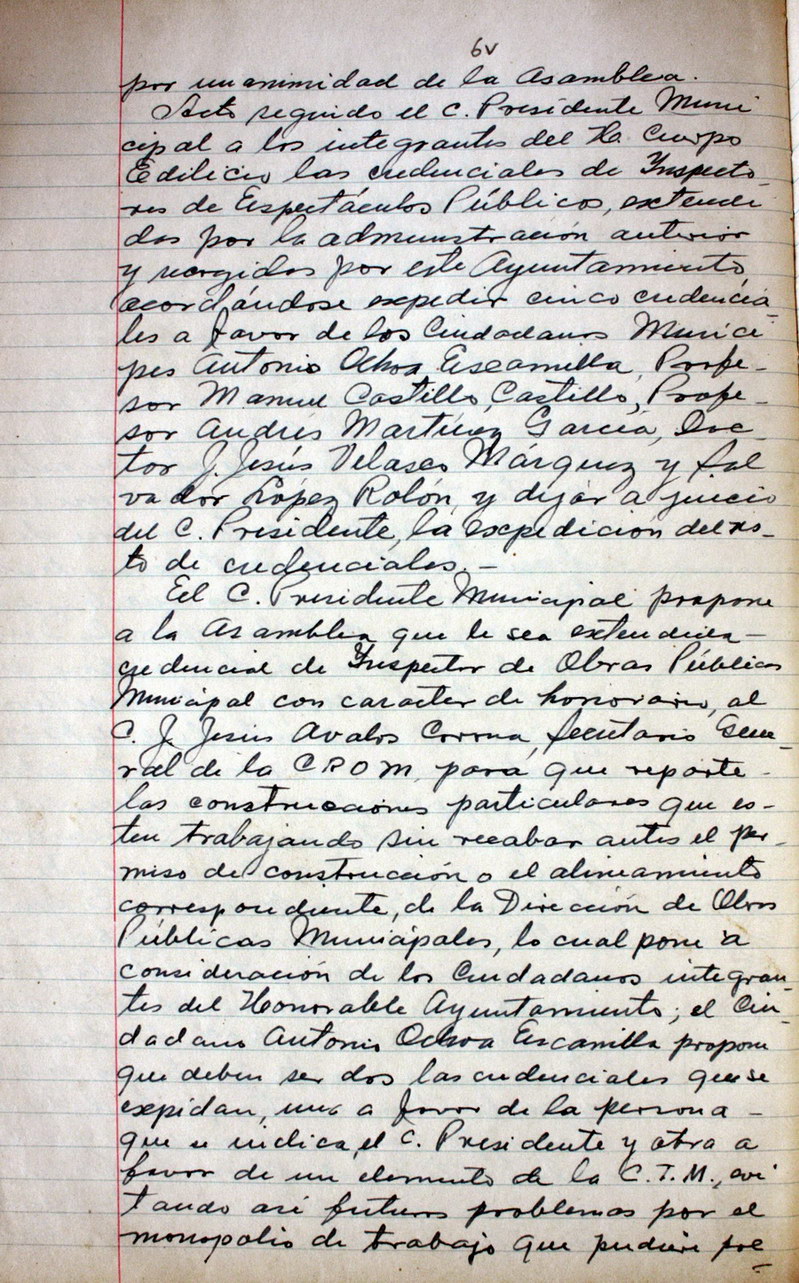 6v
por unanimidad de la Asamblea.
Acto seguido el C. Presidente Muni
cipal a los integrantes del H. Cuerpo
Edilicio las credenciales de Inspecto-
res de Espectáculos Públicos, extendi
das por la administración anterior
y recogidas por este Ayuntamiento,
acordándose expedir cinco credencia-
les a favor de los Ciudadanos Munici
pes Antonio Ochoa Escamilla, Profe-
sor Manuel Castillo Castillo, Profe-
sor Andrés Martínez García, Doc-
tor J. Jesús Velasco Márquez y Sal
vador López Rolón, y dejar a juicio
del C. Presidente, la expedición del res-
to de credenciales.-
El C. Presidente Municipal propone
a la Asamblea que le sea extendida-
credencial de Inspector de Obras Públicas
Municipal con caracter de honorario, al
C. J. Jesús Avalos Corona, Secretario Gene-
ral de la CROM, para que reporte-
las construcciones particulares que es-
ten trabajando sin recabar antes el per-
miso de construcción o el alineamiento
correspondiente, de la Dirección de Obras
Públicas Municipales, lo cual pone a
consideración de los Ciudadanos integran-
tes del Honorable Ayuntamiento; el Ciu-
dadano Antonio Ochoa Escamilla propone
que deben ser dos las credenciales que se
expidan, una a favor de la persona-
que indica, el C. Presidente y otra a
favor de un elemento de la C.T.M., evi
tando así futuros problemas por el
monopolio de trabajo que pudiere